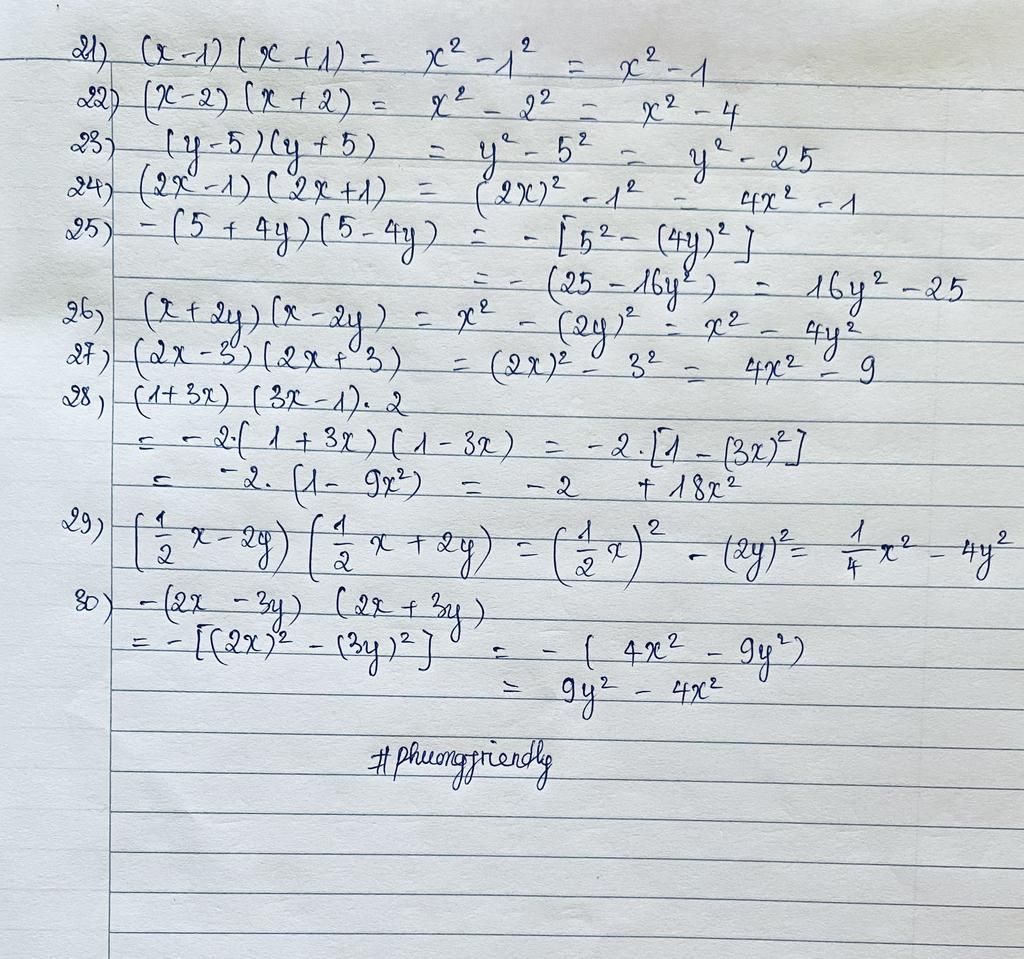 21) (x-1)(x+1) = x² - 1² = x² - 1
22) (x-2)(x+2) = x² - 2² = x² - 4
23) (y-5)(y+5) = y² - 5² = y² - 25
24) (2x-1)(2x+1) = (2x)² - 1² = 4x² - 1
25) -(5+4y)(5-4y) = -[5² - (4y)²]
= -(25 - 16y²) = 16y² - 25
26) (x+2y)(x-2y) = x² - (2y)² = x² - 4y²
27) (2x-3)(2x+3) = (2x)² - 3² = 4x² - 9
28) (1+3x)(3x-1).2
= -2.(1+3x)(1-3x) = -2.[1-(3x)²]
= -2.(1-9x²) = -2 + 18x²
29) (1/2 x - 2y)(1/2 x + 2y) = (1/2 x)² - (2y)² = 1/4 x² - 4y²
30) -(2x-3y)(2x+3y)
= -[(2x)² - (3y)²] = -(4x² - 9y²)
= 9y² - 4x²
#phuongfriendly